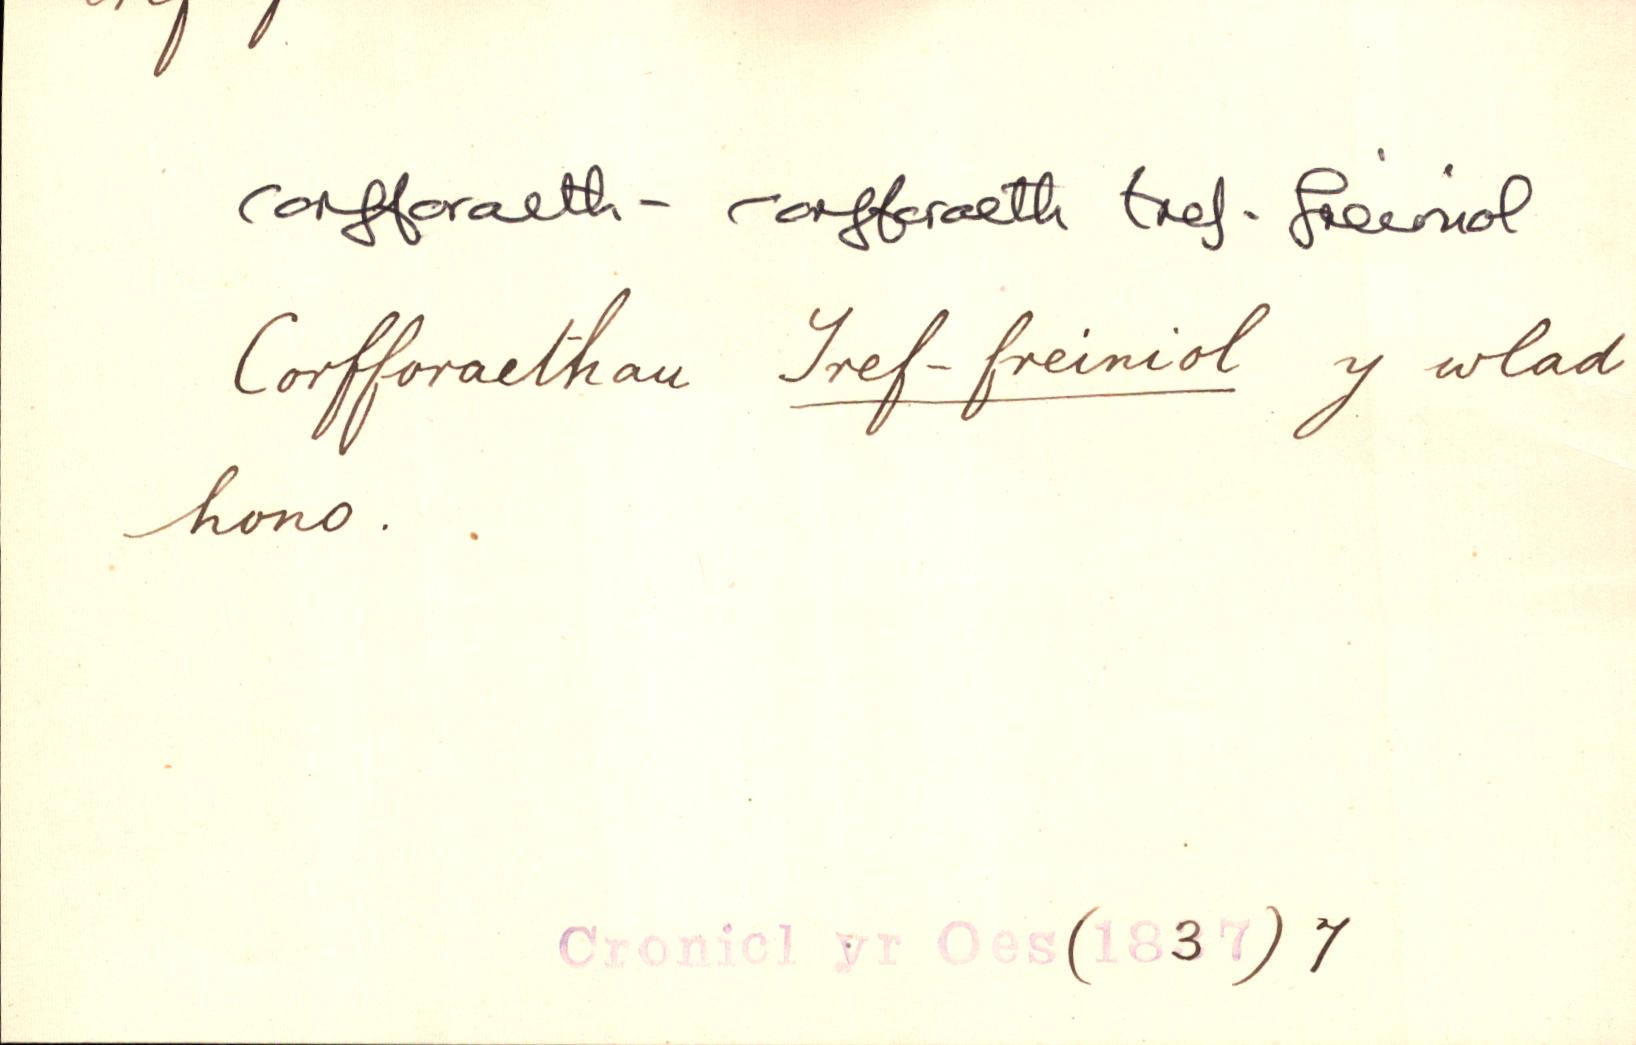 corfforaeth - corfforaeth tref-freiniol
Corfforaethau Tref-freiniol y wlad
hono.
Cronicl yr Oes (1837) 7